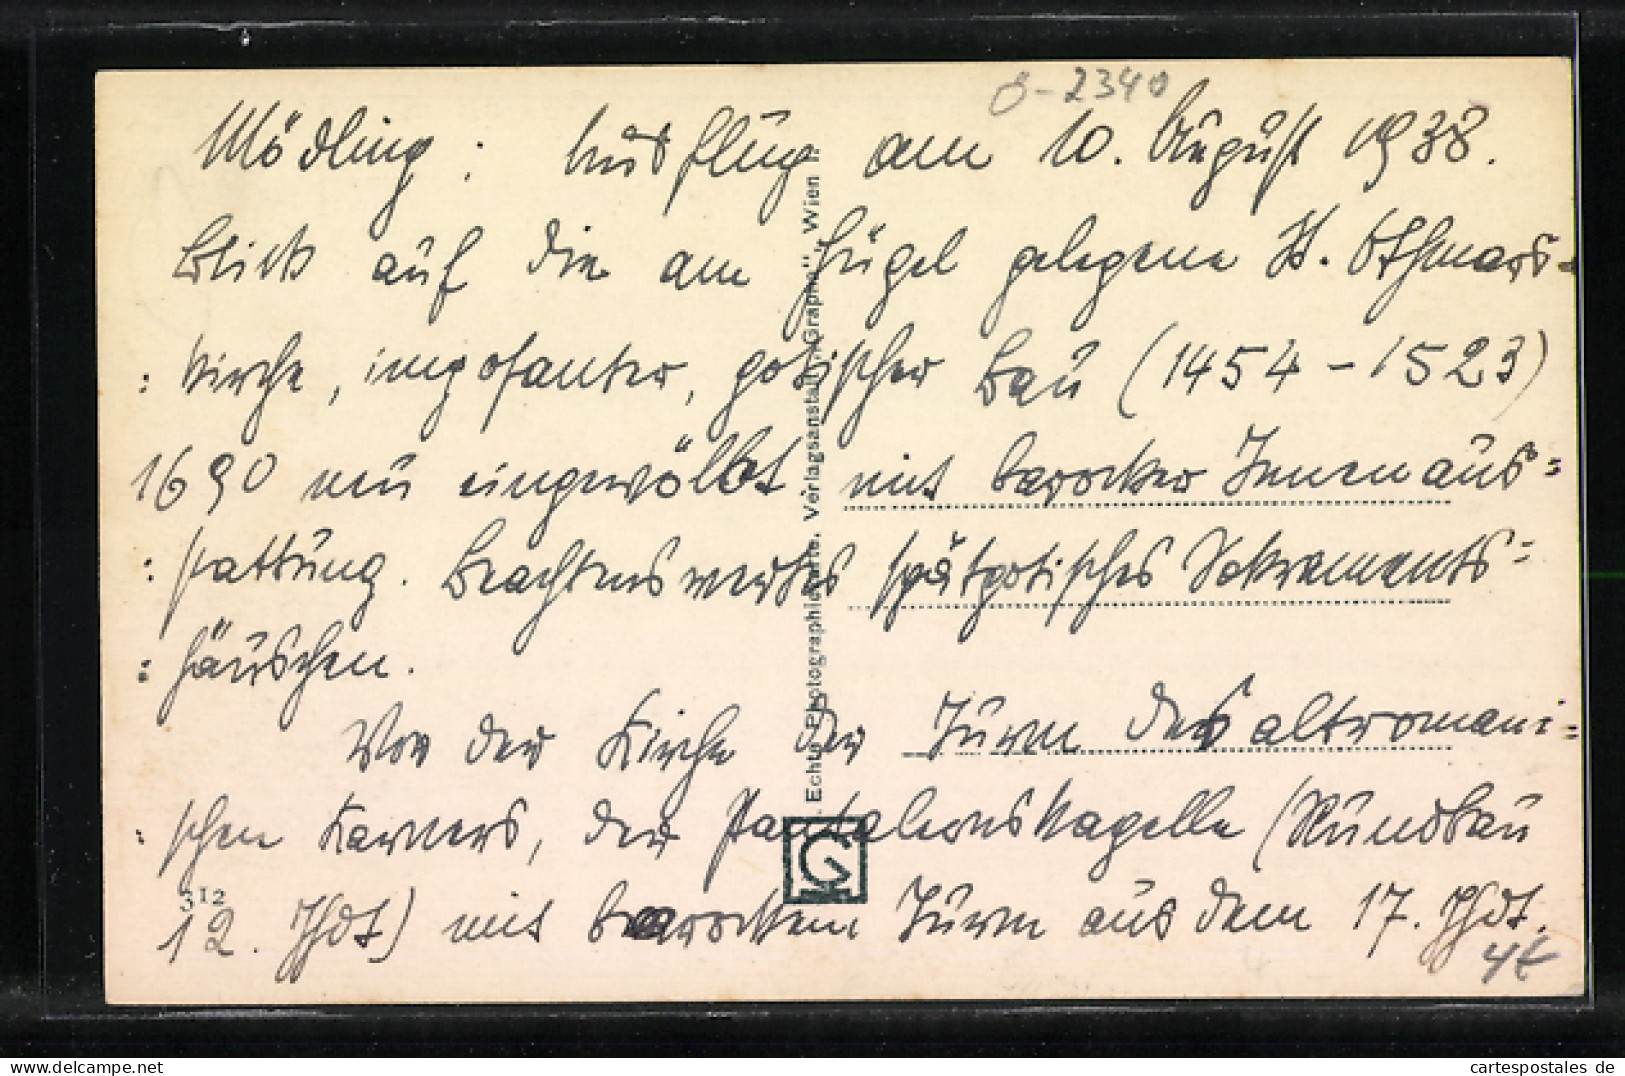 Ö-2340
Mödling: Ausflug am 10. August 1938.
Blick auf die am Hügel gelegene St. Othmars-
:kirche, imposanter, gotischer Bau (1454-1523)
1690 neu eingewölbt mit barocker Innenaus=
:stattung. Beachtenswertes spätgotisches Sakraments=
:häuschen.
Vor der Kirche der Turm des altromani=
:schen Karners, der Pantaleonskapelle (Rundbau
312
12. Jhdt) mit barockem Turm aus dem 17. Jhdt.
Echte Photographiekarte. Verlagsanstalt „Graphi“, Wien
cartespostales de